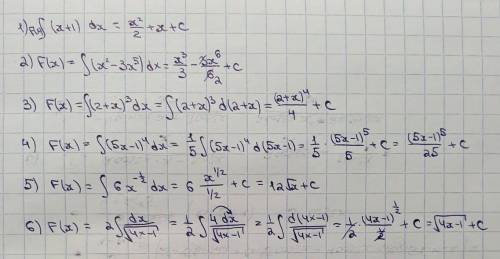 1) F(x) ∫ (x+1) dx = x²/2 + x + C
2) F(x) = ∫(x² - 3x⁵) dx = x³/3 - 3x⁶/6₂ + C
3) F(x) = ∫(2+x)³ dx = ∫(2+x)³ d(2+x) = (2+x)⁴/4 + C
4) F(x) = ∫(5x-1)⁴ dx = 1/5 ∫(5x-1)⁴ d(5x-1) = 1/5 · (5x-1)⁵/5 + C = (5x-1)⁵/25 + C
5) F(x) = ∫ 6x^(-1/2) dx = 6 x^(1/2)/(1/2) + C = 12√x + C
6) F(x) = 2∫ dx/√(4x-1) = 1/2 ∫ 4dx/√(4x-1) = 1/2 ∫ d(4x-1)/√(4x-1) = 1/2 · (4x-1)^(1/2)/(1/2) + C = √(4x-1) + C